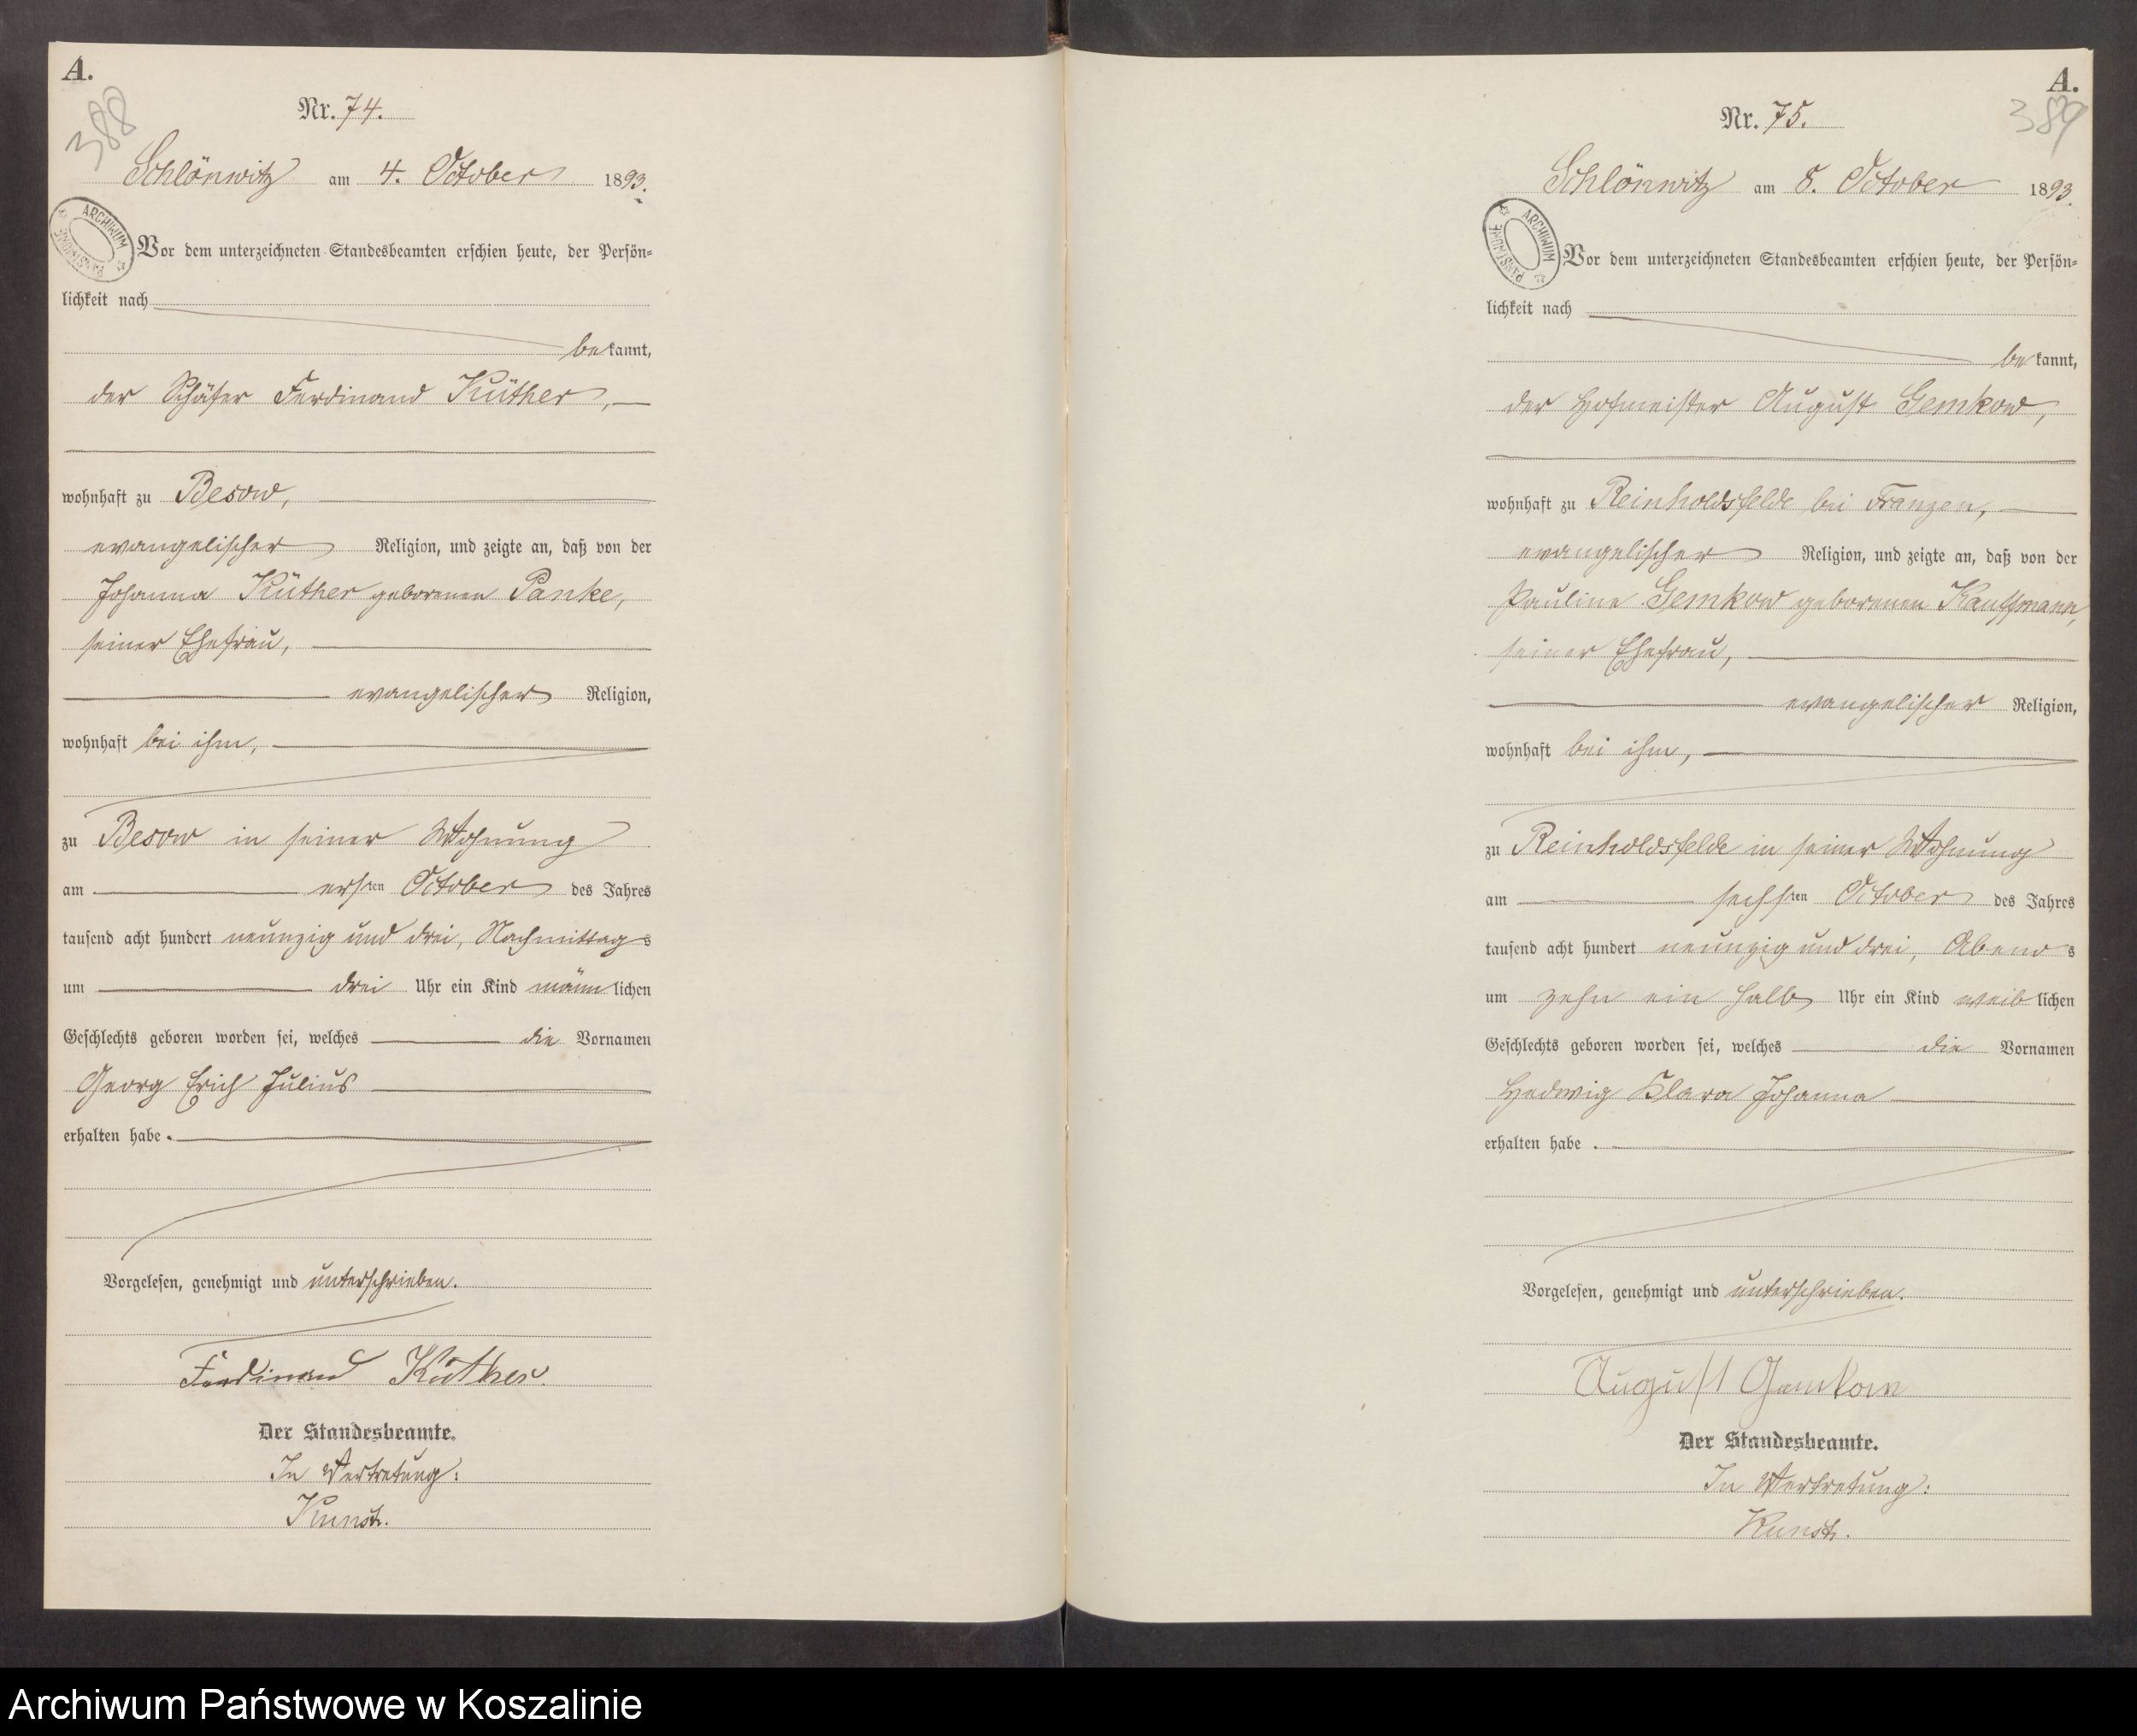 A.
388
Nr. 74.
Schlönwitz am 4. October 1893.
ARCHIWUM PAŃSTWOWE
Vor dem unterzeichneten Standesbeamten erschien heute, der Persön=
lichkeit nach
bekannt,
der Schäfer Ferdinand Küther,
wohnhaft zu Besow,
evangelischer Religion, und zeigte an, daß von der
Johanna Küther geborenen Panke,
seiner Ehefrau,
evangelischer Religion,
wohnhaft bei ihm,
zu Besow in seiner Wohnung
am ersten October des Jahres
tausend acht hundert neunzig und drei, Nachmittags
um drei Uhr ein Kind männlichen
Geschlechts geboren worden sei, welches die Vornamen
Georg Erich Julius
erhalten habe.
Vorgelesen, genehmigt und unterschrieben.
Ferdinand Küther
Der Standesbeamte.
In Vertretung:
A.
389
Nr. 75.
Schlönwitz am 8. October 1893.
ARCHIWUM PAŃSTWOWE
Vor dem unterzeichneten Standesbeamten erschien heute, der Persön=
lichkeit nach
bekannt,
der Hofmeister August Gemkow,
wohnhaft zu Reinholdsfelde bei Franzen,
evangelischer Religion, und zeigte an, daß von der
Pauline Gemkow geborenen Kauffmann,
seiner Ehefrau,
evangelischer Religion,
wohnhaft bei ihm,
zu Reinholdsfelde in seiner Wohnung
am sechsten October des Jahres
tausend acht hundert neunzig und drei, Abends
um zehn ein halb Uhr ein Kind weiblichen
Geschlechts geboren worden sei, welches die Vornamen
Hedwig Klara Johanna
erhalten habe.
Vorgelesen, genehmigt und unterschrieben.
August Gemkow
Der Standesbeamte.
In Vertretung:
Archiwum Państwowe w Koszalinie